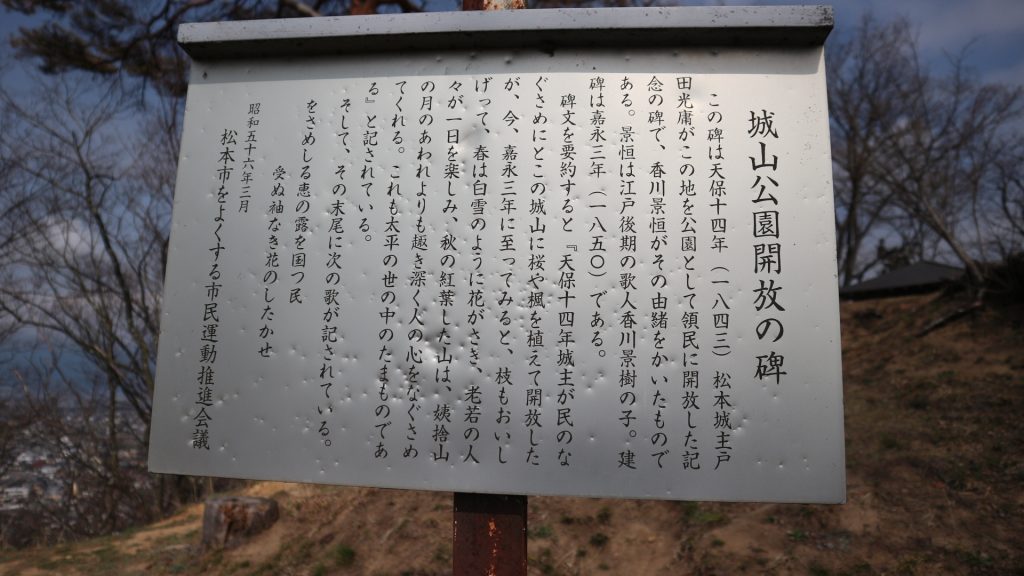 城山公園開放の碑
この碑は天保十四年（一八四三）松本城主戸
田光庸がこの地を公園として領民に開放した記
念の碑で、香川景恒がその由緒をかいたもので
ある。景恒は江戸後期の歌人香川景樹の子。建
碑は嘉永三年（一八五〇）である。
碑文を要約すると『天保十四年城主が民のな
ぐさめにとこの城山に桜や楓を植えて開放した
が、今、嘉永三年に至ってみると、枝もおいし
げって、春は白雪のように花がさき、老若の人
々が一日を楽しみ、秋の紅葉した山は、姨捨山
の月のあわれよりも趣き深く人の心をなぐさめ
てくれる。これも太平の世の中のたまものであ
る』と記されている。
そして、その末尾に次の歌が記されている。
をさめしる恵の露を国つ民
受ぬ袖なき花のしたかせ
昭和五十六年三月
松本市をよくする市民運動推進会議